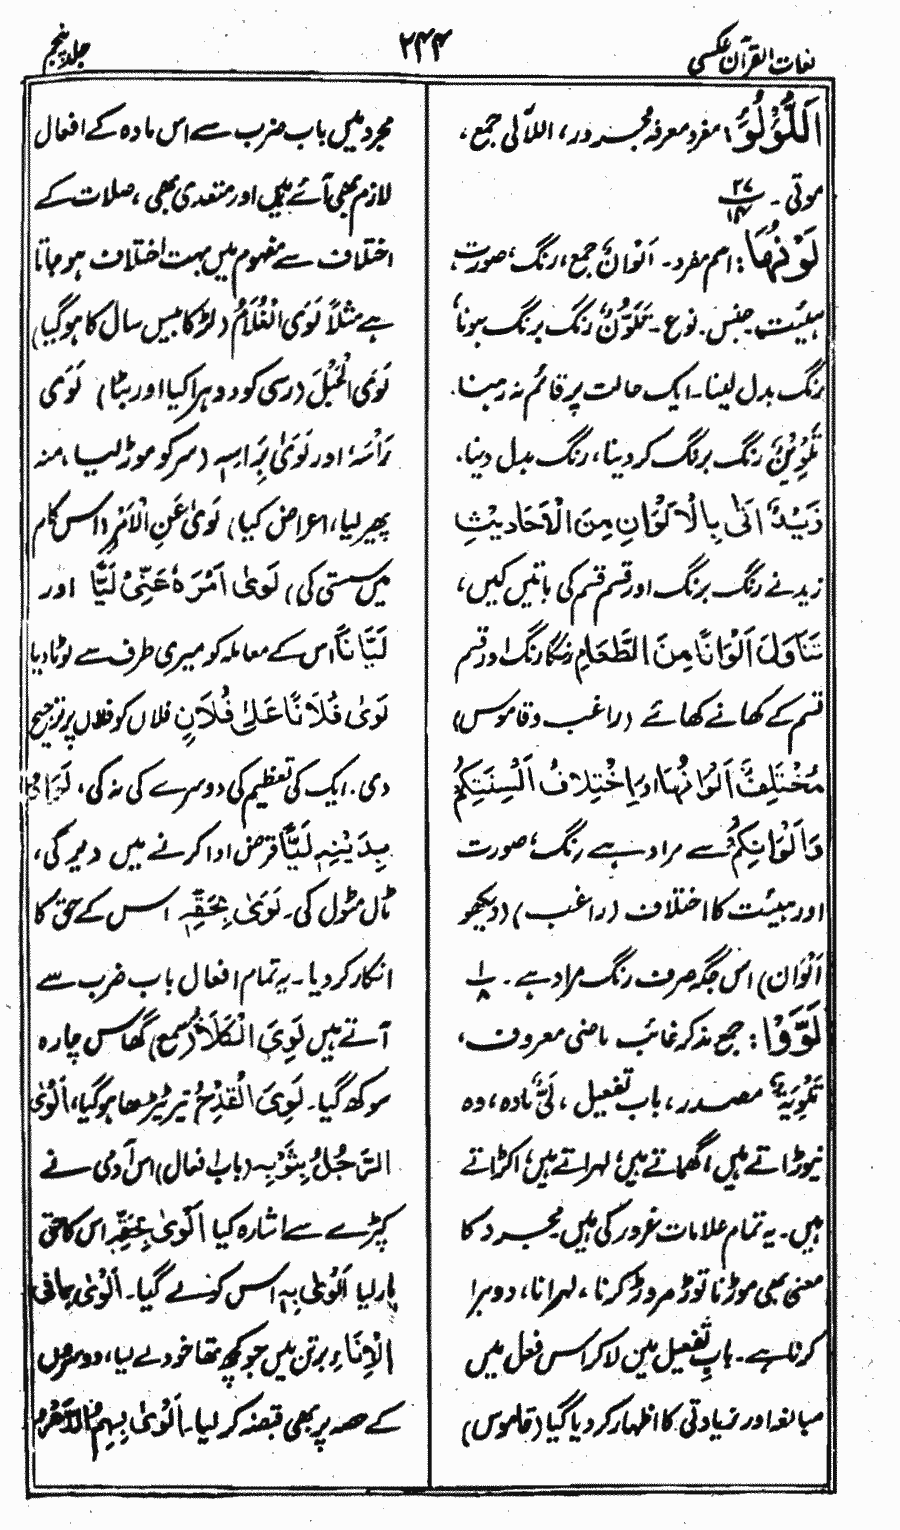 لغات القرآن عکسی
۲۴۴
جلد پنجم
اَللُّؤْلُؤُ: مفرد معرفہ مجرور، اللآلی جمع،
موتی۔ ۲۷/۱۲
لَوْنُهَا: اسم مفرد۔ اَلْوَانٌ جمع، رنگ، صورت
ہیئت جنس۔ نوع۔ تَلَوُّنٌ رنگ برنگ ہونا،
رنگ بدل لینا۔ ایک حالت پر قائم نہ رہنا۔
تَلْوِیْنٌ رنگ برنگ کر دینا، رنگ بدل دینا۔
زَیْدٌ اَتٰی بِالْاَلْوَانِ مِنَ الْاَحَادِیْثِ
زید نے رنگ برنگ اور قسم قسم کی باتیں کیں،
تَنَاوَلَ اَلْوَانًا مِنَ الطَّعَامِ رنگا رنگ اور قسم
قسم کے کھانے کھائے (راغب و قاموس)
مُخْتَلِفٌ اَلْوَانُهَا اور اِخْتِلَافُ اَلْسِنَتِكُمْ
وَاَلْوَانِكُمْ سے مراد ہے رنگ، صورت
اور ہیئت کا اختلاف (راغب) (دیکھو
اَلْوَان) اس جگہ صرف رنگ مراد ہے۔ ۱/۸
لَوَّوْا: جمع مذکر غائب ماضی معروف،
تَلْوِیَۃٌ مصدر، باب تفعیل، لَیٌّ مادہ، وہ
نیوڑاتے ہیں، گھماتے ہیں، لہراتے ہیں، اکڑاتے
ہیں۔ یہ تمام علامات غرور کی ہیں مجرد کا
معنی بھی موڑنا توڑ مروڑ کرنا، لہرانا، دوہرا
کرنا ہے۔ باب تفعیل میں لا کر اس فعل میں
مبالغہ اور زیادتی کا اظہار کر دیا گیا (قاموس)
مجرد میں باب ضرب سے اس مادہ کے افعال
لازم بھی آئے ہیں اور متعدی بھی، صلات کے
اختلاف سے مفہوم میں بہت اختلاف ہو جاتا
ہے مثلاً لَوَی الْغُلَامُ (لڑکا بیس سال کا ہو گیا)
لَوَی الْحَبْلَ (رسی کو دوہرا کیا اور بٹا) لَوَی
رَاْسَہٗ اور لَوٰی بِرَاسِہٖ (سر کو موڑ لیا، منہ
پھیر لیا، اعراض کیا) لَوٰی عَنِ الْاَمْرِ (اس کام
میں سستی کی) لَوٰی اَمْرَہٗ عَنِّیْ لَیًّا اور
لَیَّانًا اس کے معاملہ کو میری طرف سے لوٹا دیا
لَوٰی فُلَانًا عَلٰی فُلَانٍ فلاں کو فلاں پر ترجیح
دی۔ ایک کی تعظیم کی دوسرے کی نہ کی،
بِدَیْنِہٖ لَیًّا قرض ادا کرنے میں دیر کی،
ٹال مٹول کی۔ لَوٰی بِحَقِّہٖ اس کے حق کا
انکار کر دیا۔ یہ تمام افعال باب ضرب سے
آتے ہیں لَوِیَ الْکَلَاُ (سمع) گھاس چارہ
سوکھ گیا۔ لَوِیَ الْقِدْحُ تیر ٹیڑھا ہو گیا، اَلْوٰی
الرَّجُلُ بِثَوْبِہٖ (باب افعال) اس آدمی نے
کپڑے سے اشارہ کیا اَلْوٰی بِحَقِّہٖ اس کا حق
مار لیا اَلْوٰی بِہٖ اس کو لے گیا۔ اَلْوٰی بِمَا فِی
الْاِنَاءِ برتن میں جو کچھ تھا خود لے لیا، دوسروں
کے حصہ پر بھی قبضہ کر لیا۔ اَلْوٰی بِهِمُ الدَّهْرُ